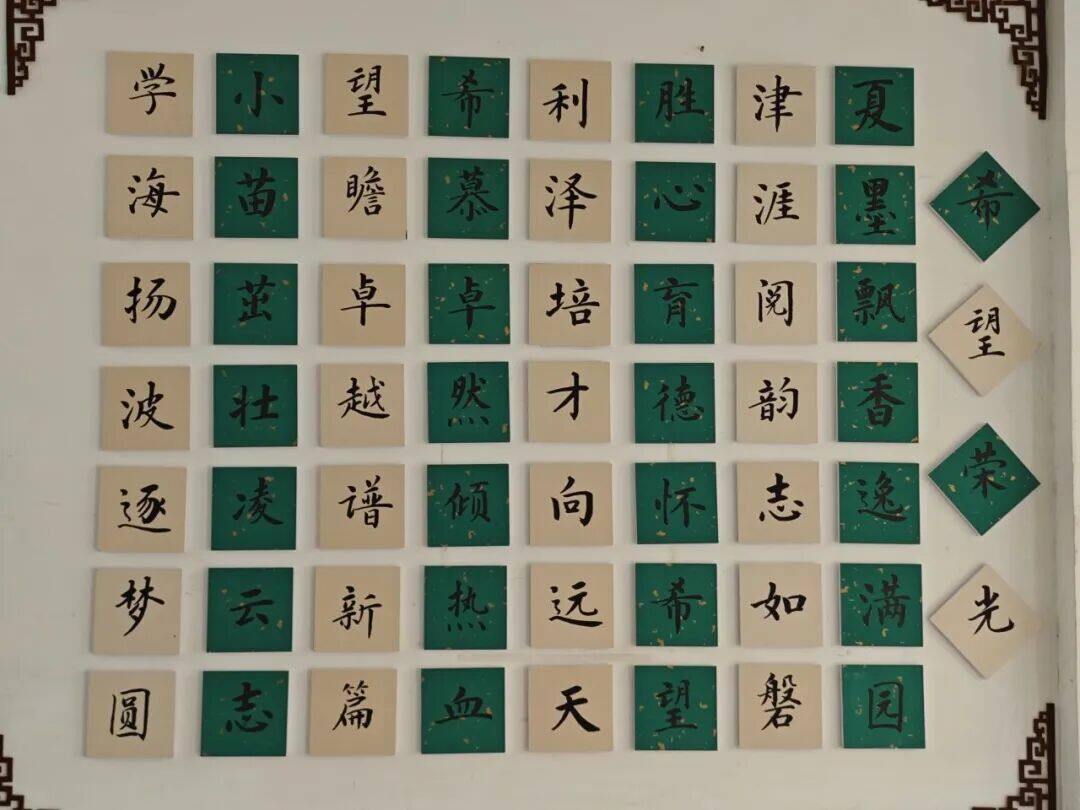 希望荣光
夏墨飘香逸满园
津涯阅韵志如磐
胜心肓德怀希望
利泽培才向远天
希慕卓然倾热血
望瞻卓越谱新篇
小苗茁壮凌云志
学海扬波逐梦圆